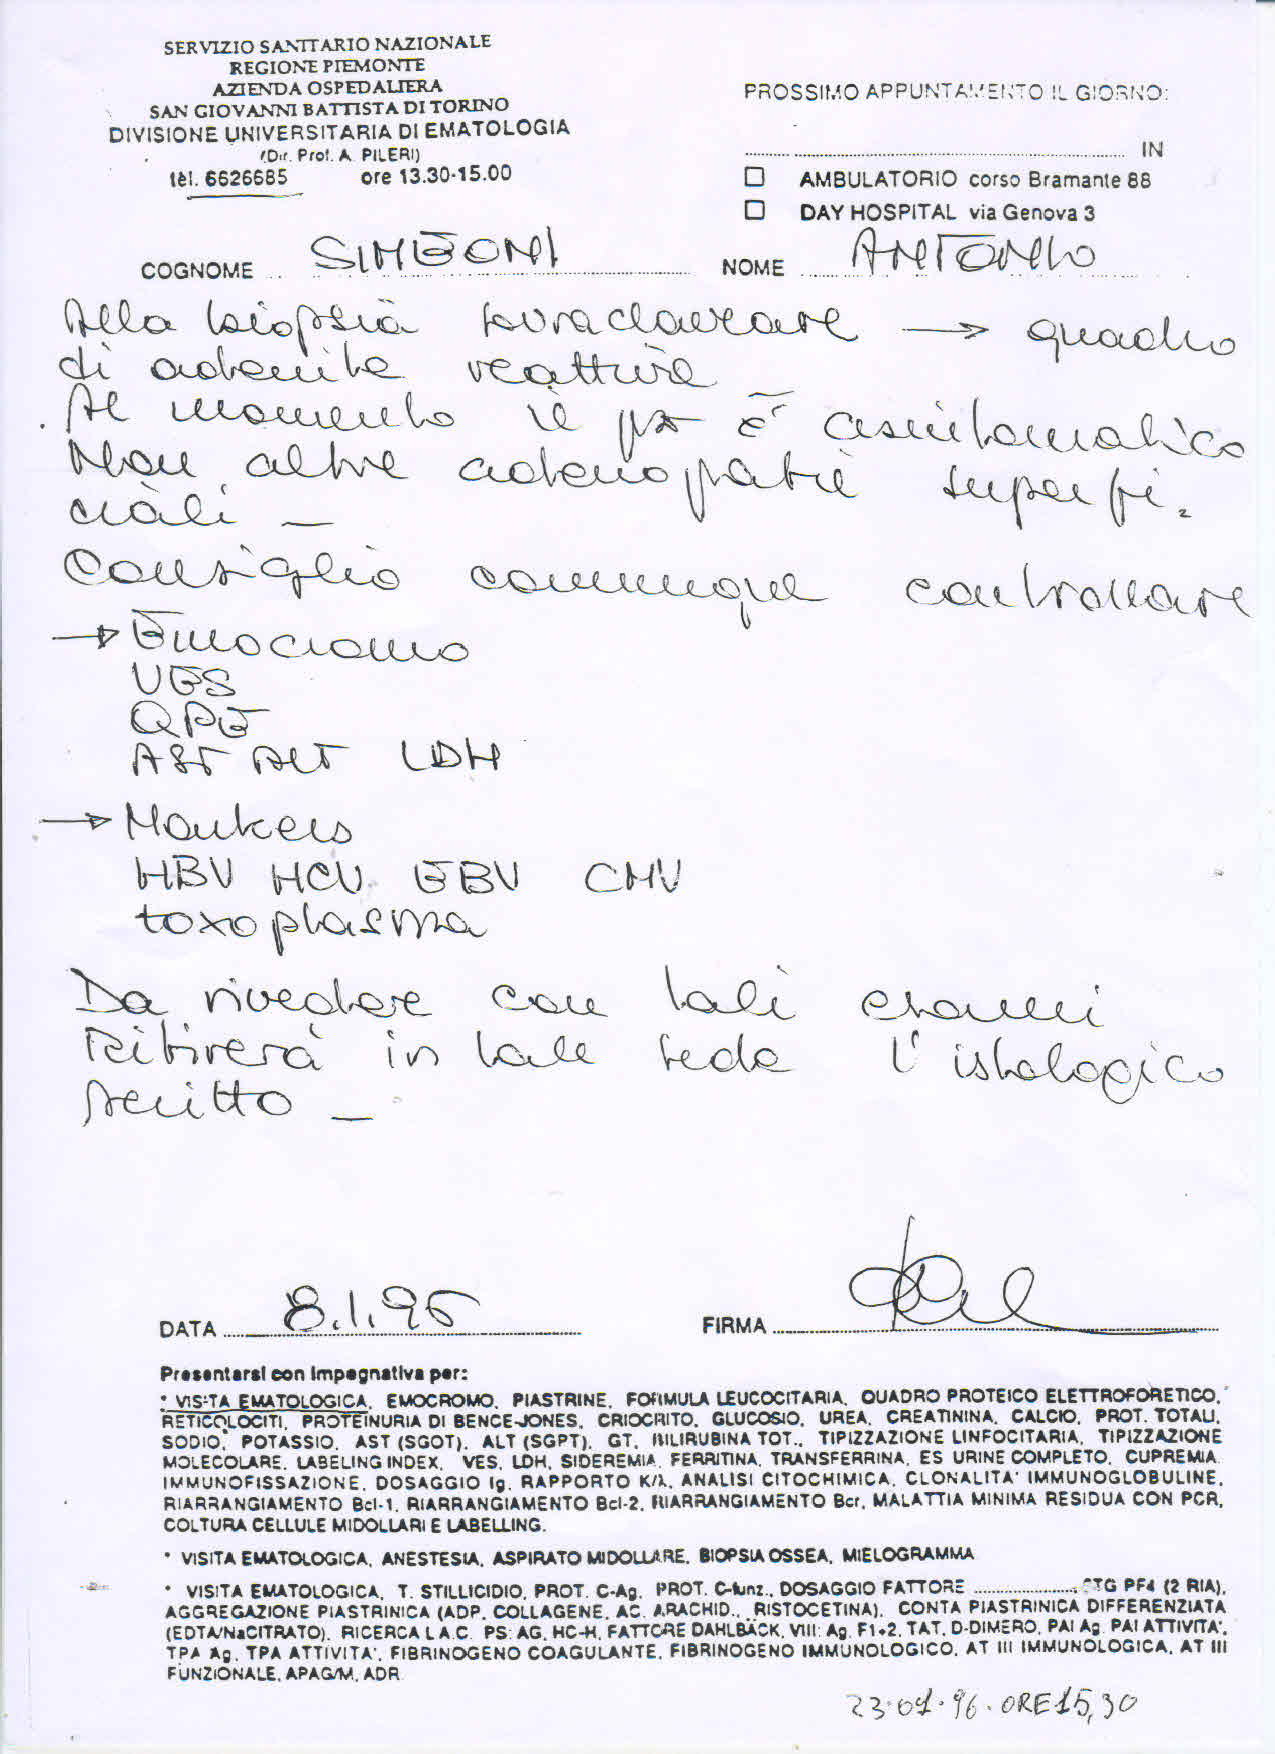 SERVIZIO SANITARIO NAZIONALE
REGIONE PIEMONTE
AZIENDA OSPEDALIERA
SAN GIOVANNI BATTISTA DI TORINO
DIVISIONE UNIVERSITARIA DI EMATOLOGIA
(Dir. Prof. A. PILERI)
tel. 6626685 ore 13.30-15.00
PROSSIMO APPUNTAMENTO IL GIORNO:
IN
AMBULATORIO corso Bramante 88
DAY HOSPITAL via Genova 3
COGNOME SIMEONI NOME ANTONIO
Alla biopsia sovraclaveare → quadro
di adenite reattiva
Al momento il pz è asintomatico
Non altre adenopatie superfi-
ciali –
Consiglio comunque controllare
→ Emocromo
VES
QPE
AST ALT LDH
→ Markers
HBV HCV EBV CMV
toxoplasma
Da rivedere con tali esami
Ritirerà in tale sede l'istologico
scritto –
DATA 8.1.96
FIRMA
Presentarsi con impegnativa per:
* VISITA EMATOLOGICA, EMOCROMO, PIASTRINE, FORMULA LEUCOCITARIA, QUADRO PROTEICO ELETTROFORETICO,
RETICOLOCITI, PROTEINURIA DI BENCE-JONES, CRIOCRITO, GLUCOSIO, UREA, CREATININA, CALCIO, PROT. TOTALI,
SODIO, POTASSIO, AST (SGOT), ALT (SGPT), GT, BILIRUBINA TOT., TIPIZZAZIONE LINFOCITARIA, TIPIZZAZIONE
MOLECOLARE, LABELING INDEX, VES, LDH, SIDEREMIA, FERRITINA, TRANSFERRINA, ES URINE COMPLETO, CUPREMIA,
IMMUNOFISSAZIONE, DOSAGGIO Ig, RAPPORTO K/λ, ANALISI CITOCHIMICA, CLONALITA' IMMUNOGLOBULINE,
RIARRANGIAMENTO Bcl-1, RIARRANGIAMENTO Bcl-2, RIARRANGIAMENTO Bcr, MALATTIA MINIMA RESIDUA CON PCR,
COLTURA CELLULE MIDOLLARI E LABELLING.
* VISITA EMATOLOGICA, ANESTESIA, ASPIRATO MIDOLLARE, BIOPSIA OSSEA, MIELOGRAMMA
* VISITA EMATOLOGICA, T. STILLICIDIO, PROT. C-Ag, PROT. C-funz., DOSAGGIO FATTORE PF4 (2 RIA),
AGGREGAZIONE PIASTRINICA (ADP, COLLAGENE, AC. ARACHID., RISTOCETINA), CONTA PIASTRINICA DIFFERENZIATA
(EDTA/NaCITRATO), RICERCA L.A.C. PS: AG, HC-H, FATTORE DAHLBÄCK, VIII: Ag, F1+2, TAT, D-DIMERO, PAI Ag, PAI ATTIVITA',
TPA Ag, TPA ATTIVITA', FIBRINOGENO COAGULANTE, FIBRINOGENO IMMUNOLOGICO, AT III IMMUNOLOGICA, AT III
FUNZIONALE, APAG/M, ADR
23.01.96. ORE 15,30